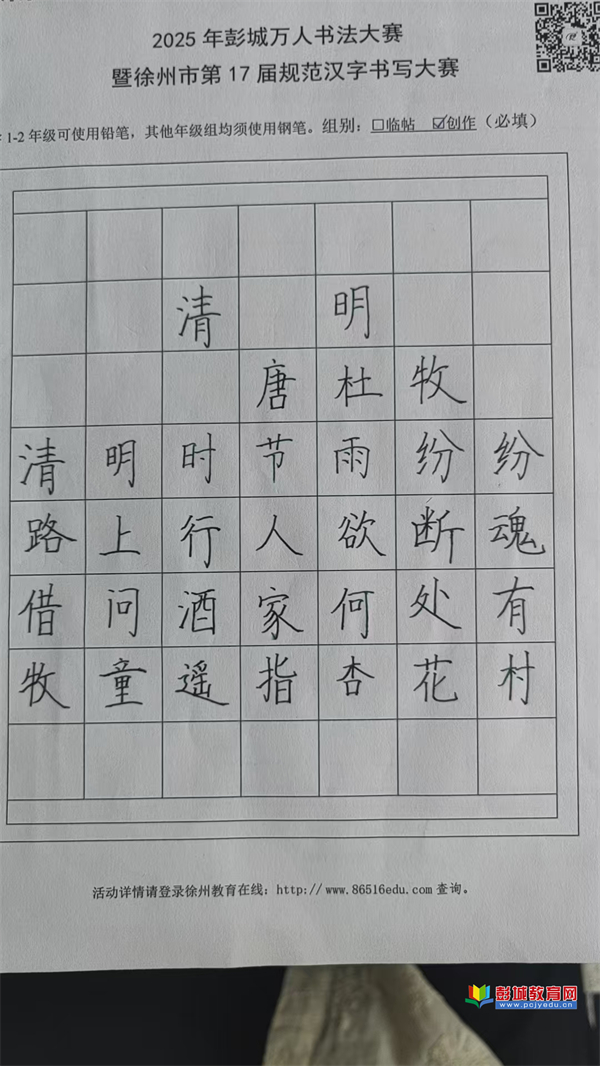 2025年彭城万人书法大赛
暨徐州市第17届规范汉字书写大赛
：1-2年级可使用铅笔，其他年级组均须使用钢笔。组别：□临帖 ☑创作（必填）
清明
唐杜牧
清明时节雨纷纷
路上行人欲断魂
借问酒家何处有
牧童遥指杏花村
活动详情请登录徐州教育在线：http://www.86516edu.com查询。
彭城教育网
www.pcjyedu.cn